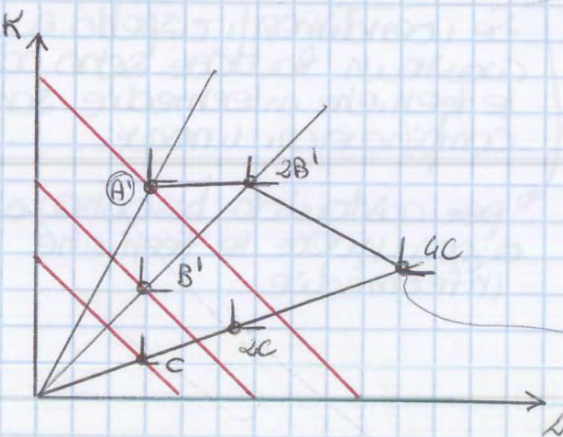 K
A'
2B'
4C
B'
2C
C
L